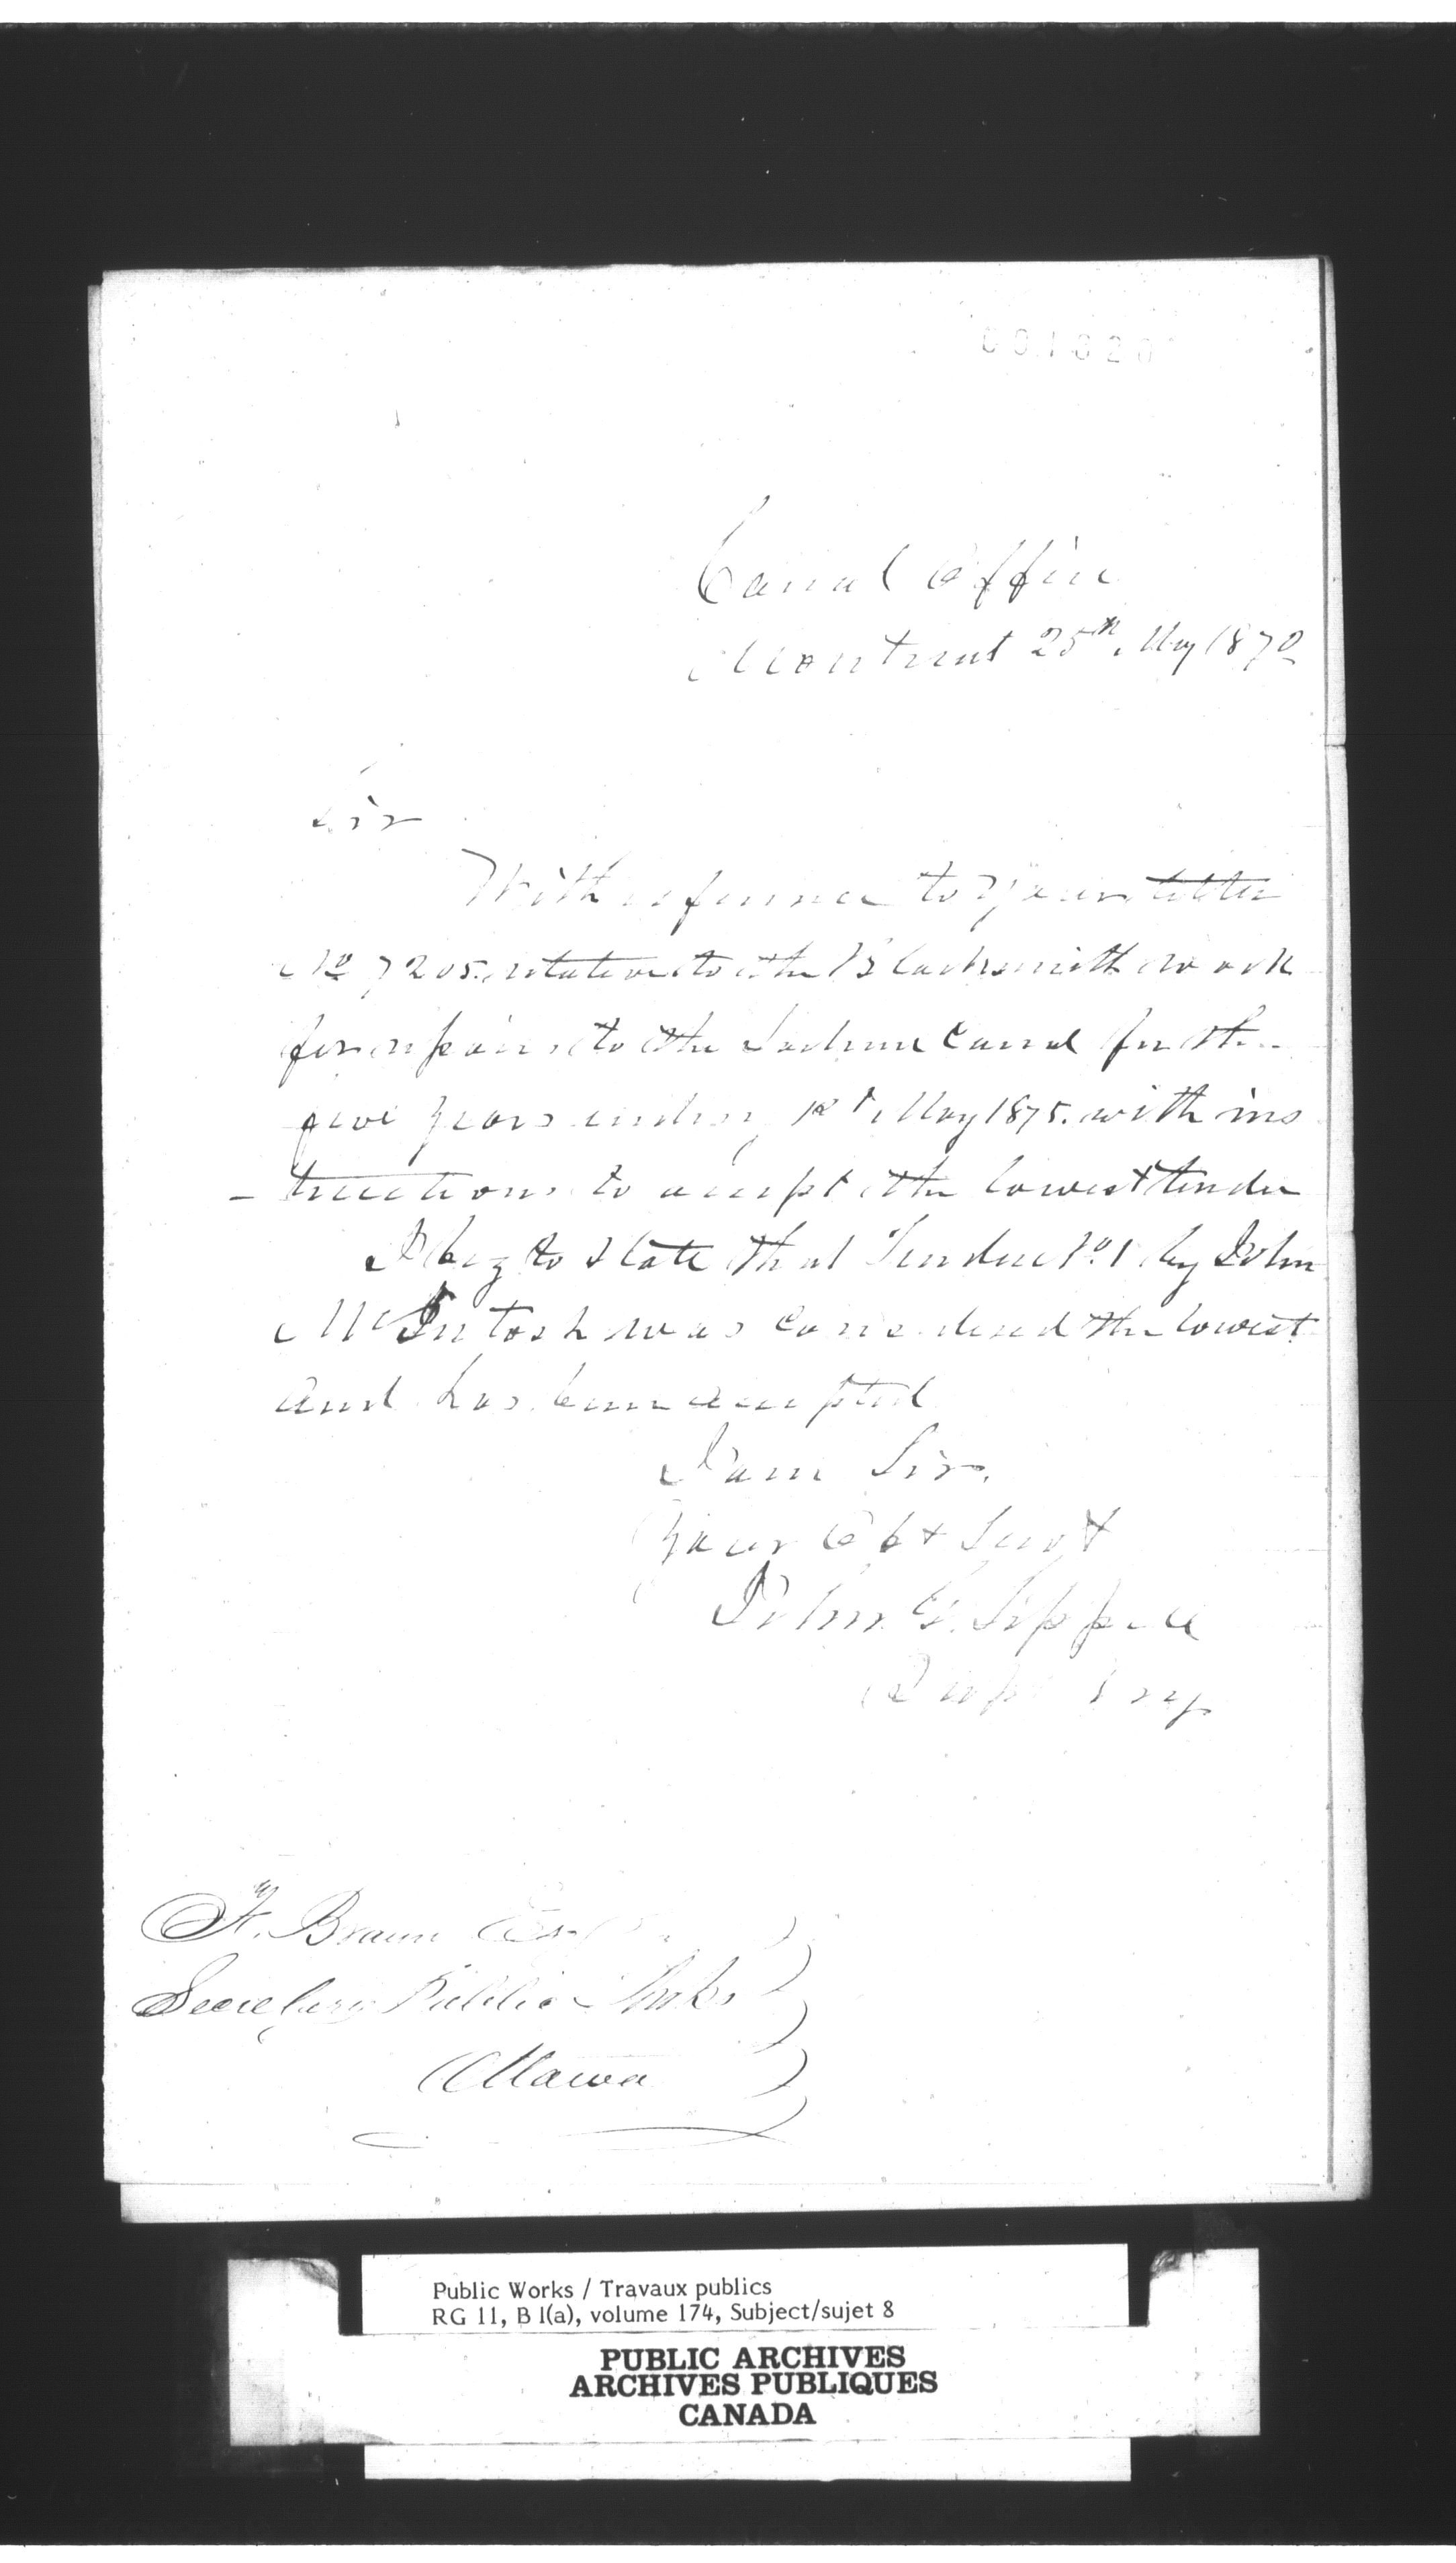 001020
Canal Office
Montreal 25th May 1870
Sir
With reference to your letter
No 7205. relative to the Blacksmith work
for repairs to the Lachine Canal for the
five years ending 1st May 1875. with ins
- tructions to accept the lowest tender
I beg to state that Tender No. 1 by John
McIntosh was considered the lowest
and has been accepted
I am Sir.
Your Obt Servt
John G. Sippell
Supt Eng.
F. Braun Esqr
Secretary Public Works
Ottawa
Public Works / Travaux publics
RG 11, B 1(a), volume 174, Subject/sujet 8
PUBLIC ARCHIVES
ARCHIVES PUBLIQUES
CANADA